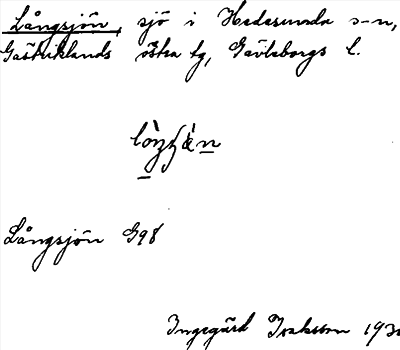 Långsjön, sjö i Hedesunda s-n,
Gästriklands östra tg, Gävleborgs l.
Långsjön G98
Ingegärd 193